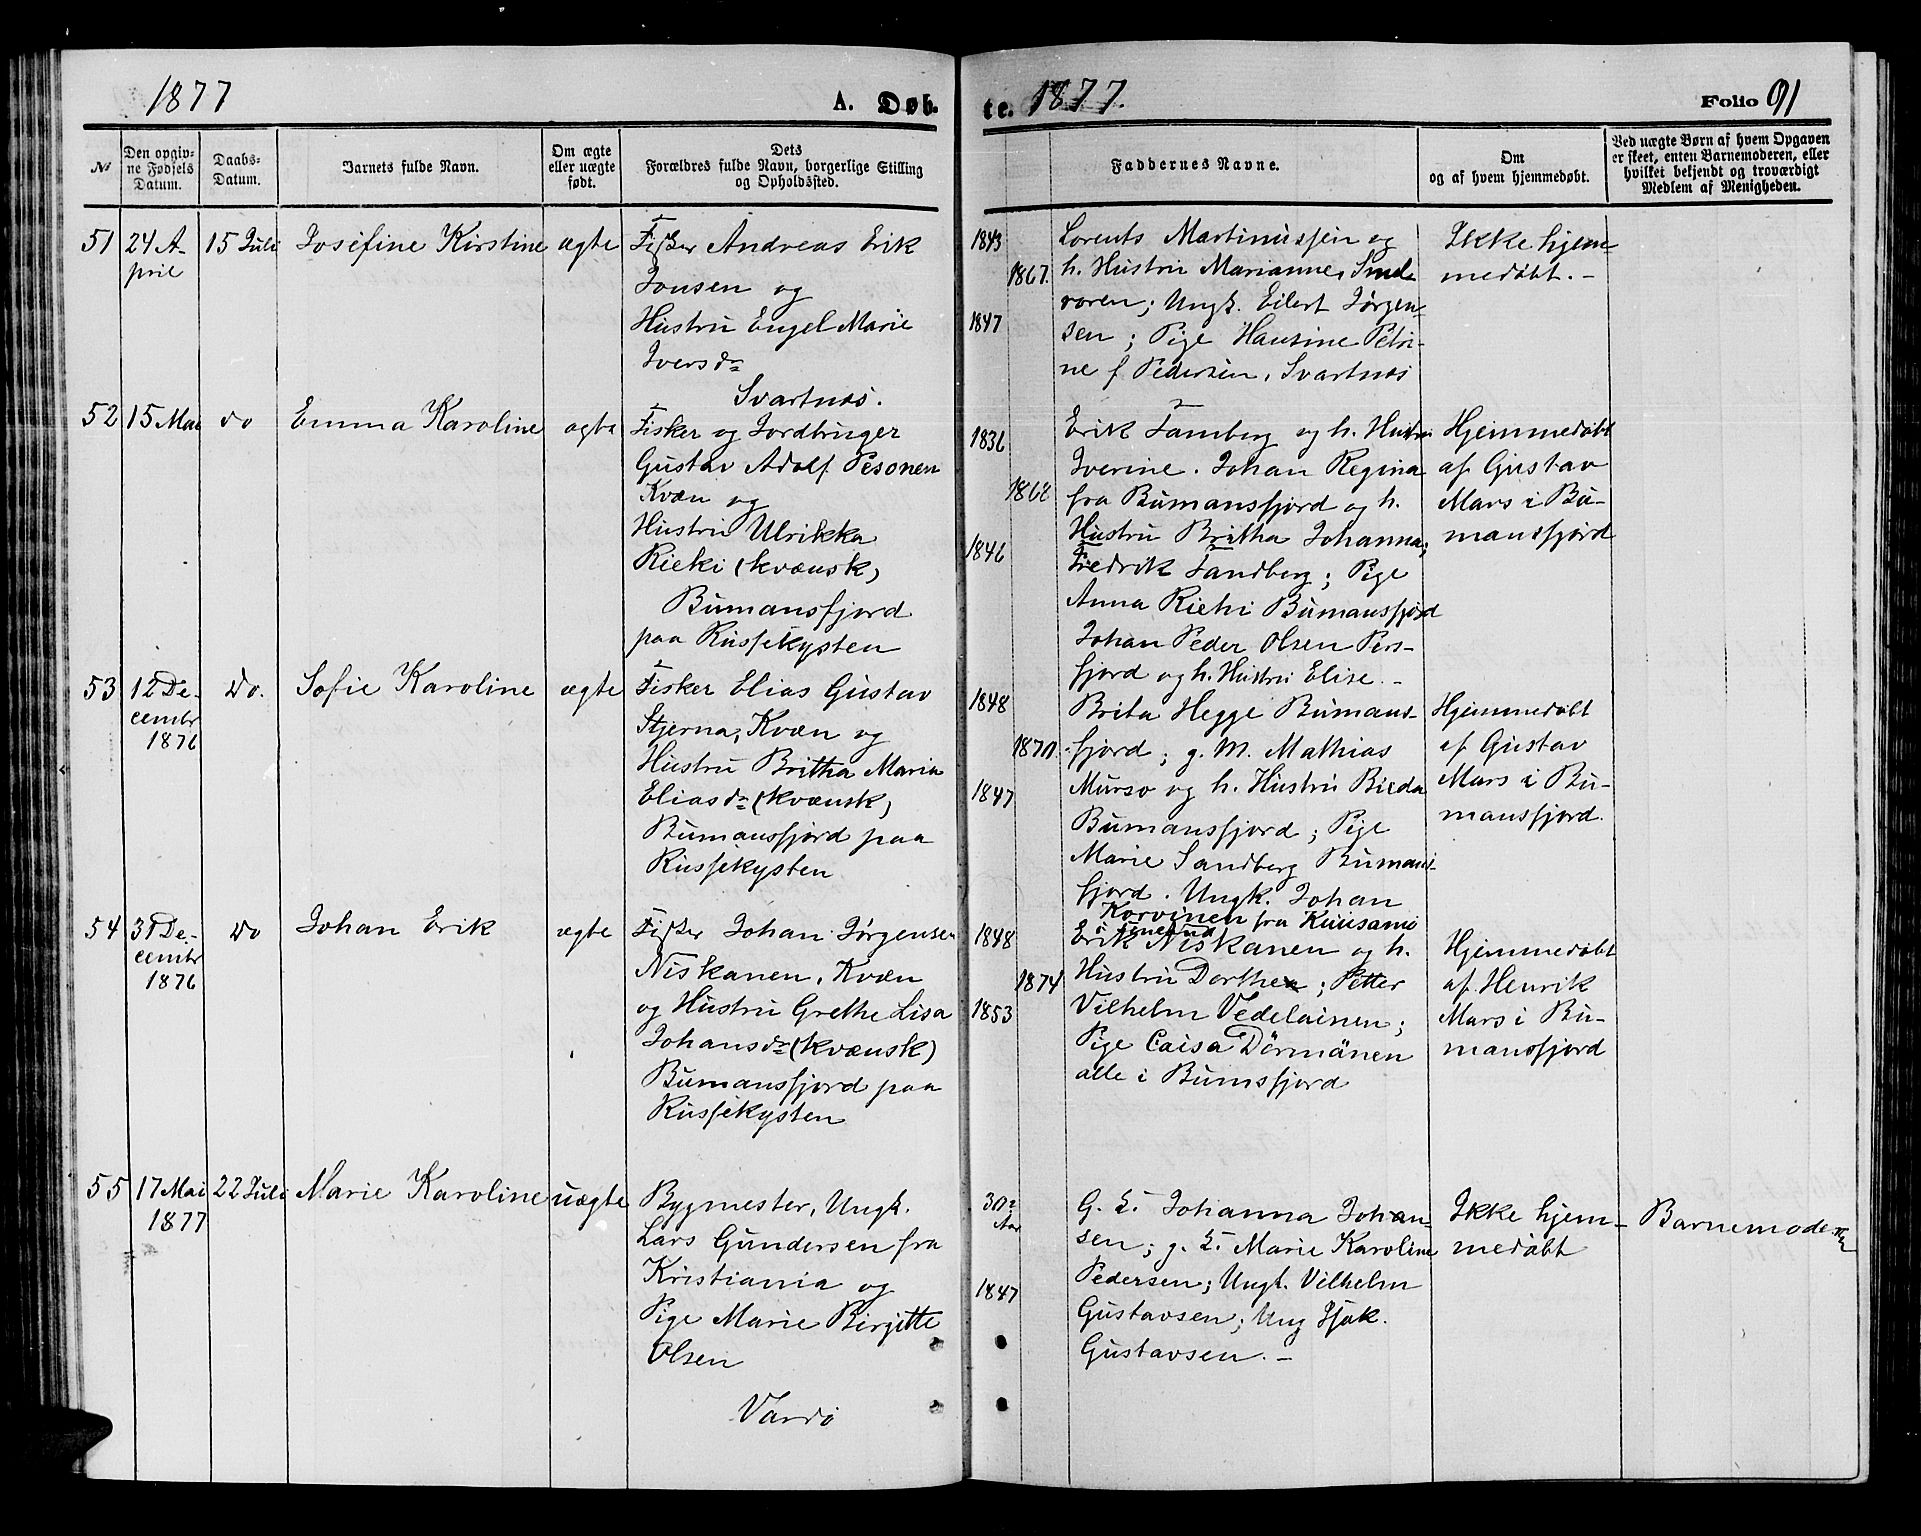 1877
A. Døb.
№
Den opgiv-
ne Fødsels
Datum.
Daabs-
Datum.
Barnets fulde Navn.
Om ægte
eller uægte
født.
Dets
Forældres fulde Navn, borgerlige Stilling
og Opholdsted.
51
24 A-
pril
15 Juli
Josefine Kirstine
ægte
Fisker Andreas Erik
Jonsen og
Hustru Engel Marie
Iversdr
Svartnæs.
52
15 Mai
do
Emma Karoline
ægte
Fisker og Jordbruger
Gustav Adolf Pesonen
Kvæn og
Hustru Ulrikka
Rieki (kvænsk)
Bumansfjord
paa Russekysten
53
12 De-
cembr
1876
do.
Sofie Karoline
ægte
Fisker Elias Gustav
Stjerna, Kvæn og
Hustru Britha Maria
Eliasdr (kvænsk)
Bumansfjord paa
Russekysten
54
31 De-
cembr
1876
do
Johan Erik
ægte
Fisker Johan Jørgensen
Niskanen, Kvæn
og Hustru Grethe Lisa
Johansdr (kvænsk)
Bumansfjord paa
Russekysten
55
17 Mai
1877
22 Juli
Marie Karoline
uægte
Bygmester, Ungk.
Lars Gundersen fra
Kristiania og
Pige Marie Birgitte
Olsen
Vardø
te. 1877.
Folio 91
Faddernes Navne.
Om
og af hvem hjemmedøbt.
Ved uægte Børn af hvem Opgaven
er skeet, enten Barnemoderen, eller
hvilket bekjendt og troværdigt
Medlem af Menigheden.
1843
1867.
1847
Lorents Martinussen og
h. Hustru Marianne, Smel
roren; Ungk. Eilert Jørgen-
sen; Pige Hansine Petri-
ne f Pedersen, Svartnæs
Ikke hjem-
medøbt. -
1836
1868
1846
Erik Tamberg og h. Hustru
Iverine. Johan Regina
fra Bumansfjord og h.
Hustru Britha Johanna;
Fredrik Tandberg; Pige
Anna Riehi Bumansfjord
Johan Peder Olsen Pers-
fjord og h. Hustru Elise. -
Hjemmedøbt
af Gustav
Mars i Bu-
mansfjord
1848
1870.
1847
Brita Hegge Bumans-
fjord; g. M. Mathias
Murso og h. Hustru Bieda
Bumansfjord; Pige
Marie Sandberg Bumans-
fjord. Ungk. Johan
Korvinen fra Kuusamo
i Finland
Hjemmedøbt
af Gustav
Mars i Bu-
mansfjord.
1848
1874
1853
Erik Niskanen og h.
Hustru Dorthea; Petter
Vilhelm Vedelainen;
Pige Caisa Dörmänen
alle i Bumsfjord
Hjemmedøbt
af Henrik
Mars i Bu-
mansfjord
30
Aar
1847
G. K. Johanna Johan-
sen; g. K. Marie Karoline
Pedersen; Ungk. Vilhelm
Gustavsen; Ung Isak.
Gustavsen. -
Ikke hjem-
medøbt
Barnemoderen